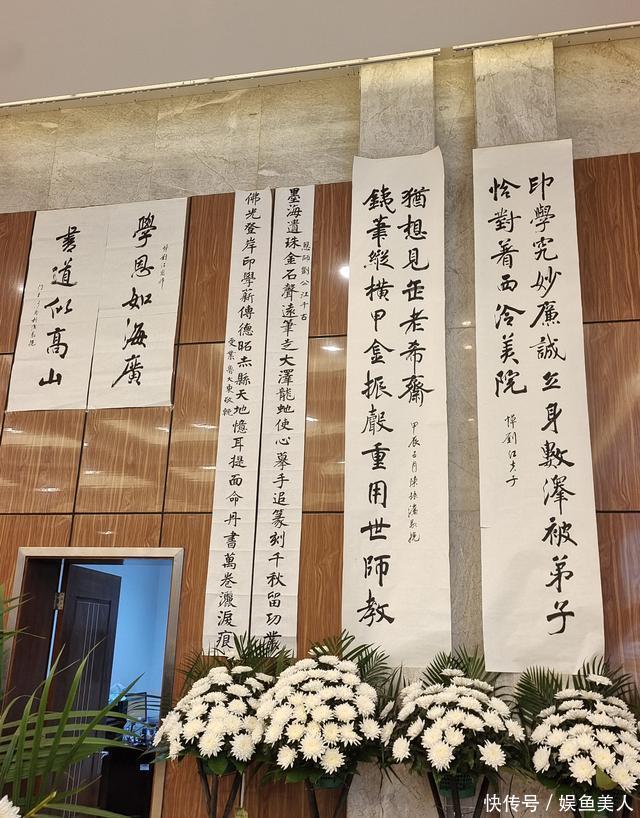 印學究妙廉誠立身敷澤被弟子
恰對着西泠美院
悼劉江夫子
鐵筆縱橫甲金振聲重用世師教
猶想見缶老希齋
甲辰五月陳振濂敬挽
恩師劉公江千古
墨海遺珠金石聲遠筆走大澤龍虵使心摹手追篆刻千秋留功
佛光登岸印學薪傳德昭赤縣天地憶耳提面命丹書萬卷灑淚痕
受業魯大東敬輓
悼劉江恩師
學恩如海廣
書道似高山
快传号/娱鱼美人